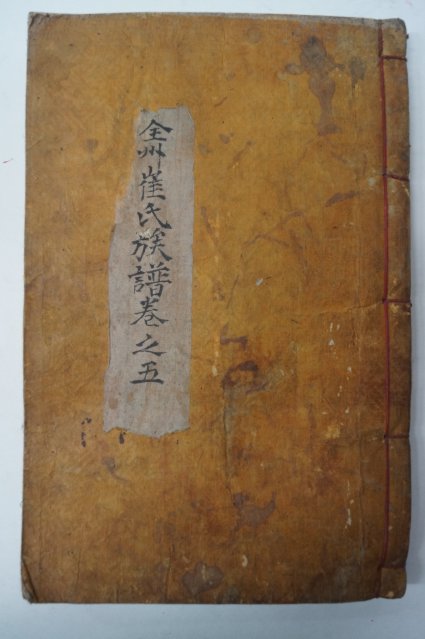 全州崔氏族譜卷之五